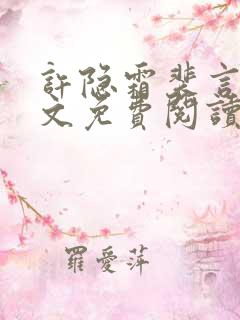 許隐霜裴言
文免費閱讀
羅愛萍